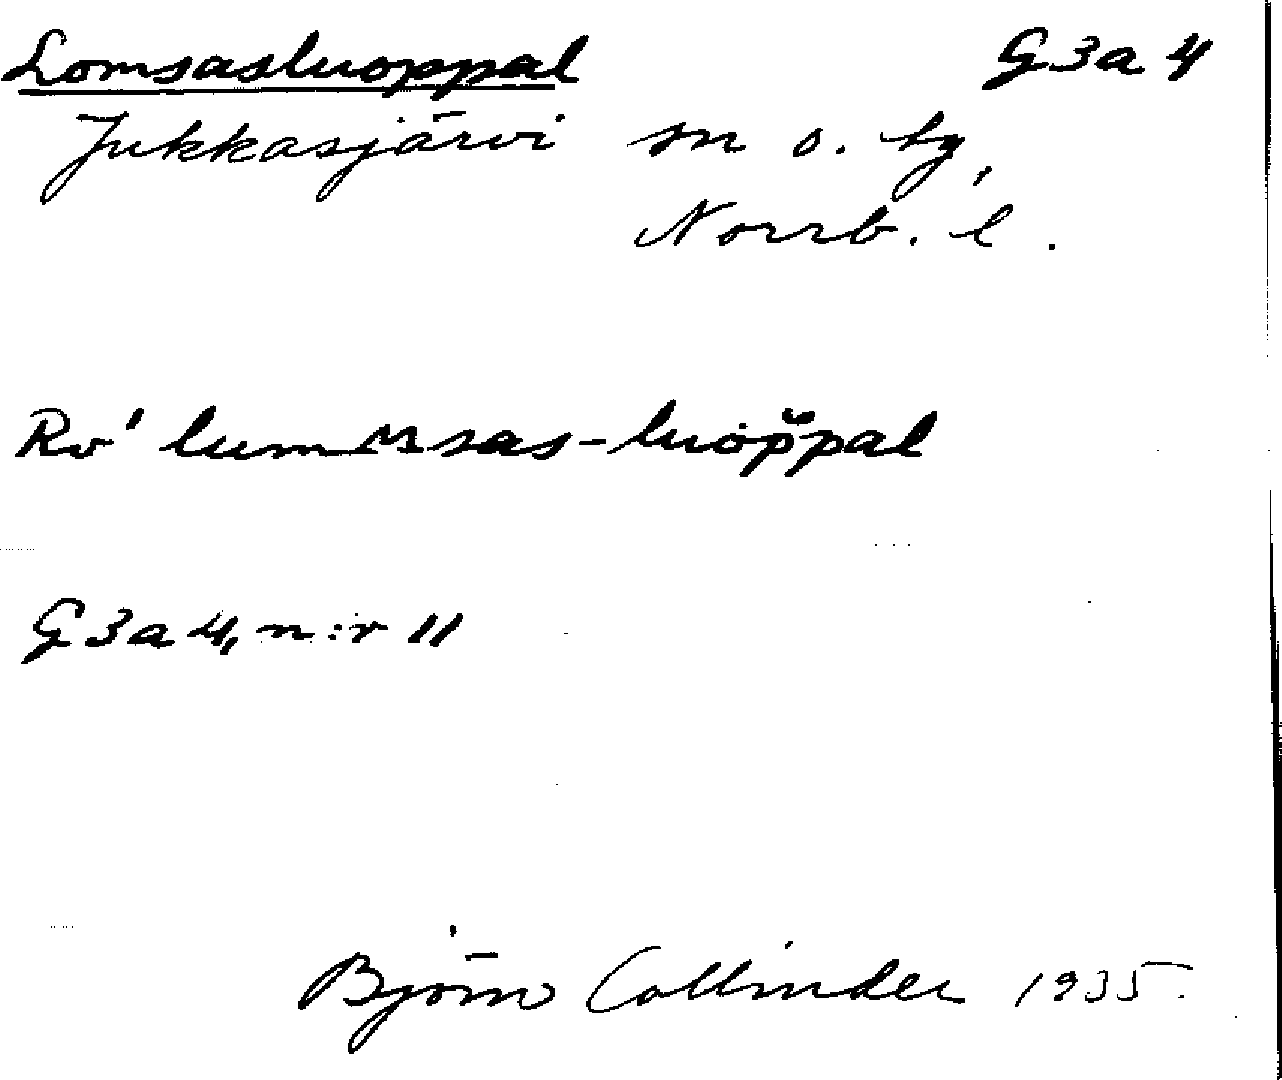 Lomsasluoppal G3a4
Jukkasjärvi sn o. tg,
Norrb. l.
Rv' lumᴍsas-luop̌pal
G3a4, n:r 11
Björn Collinder 1935.